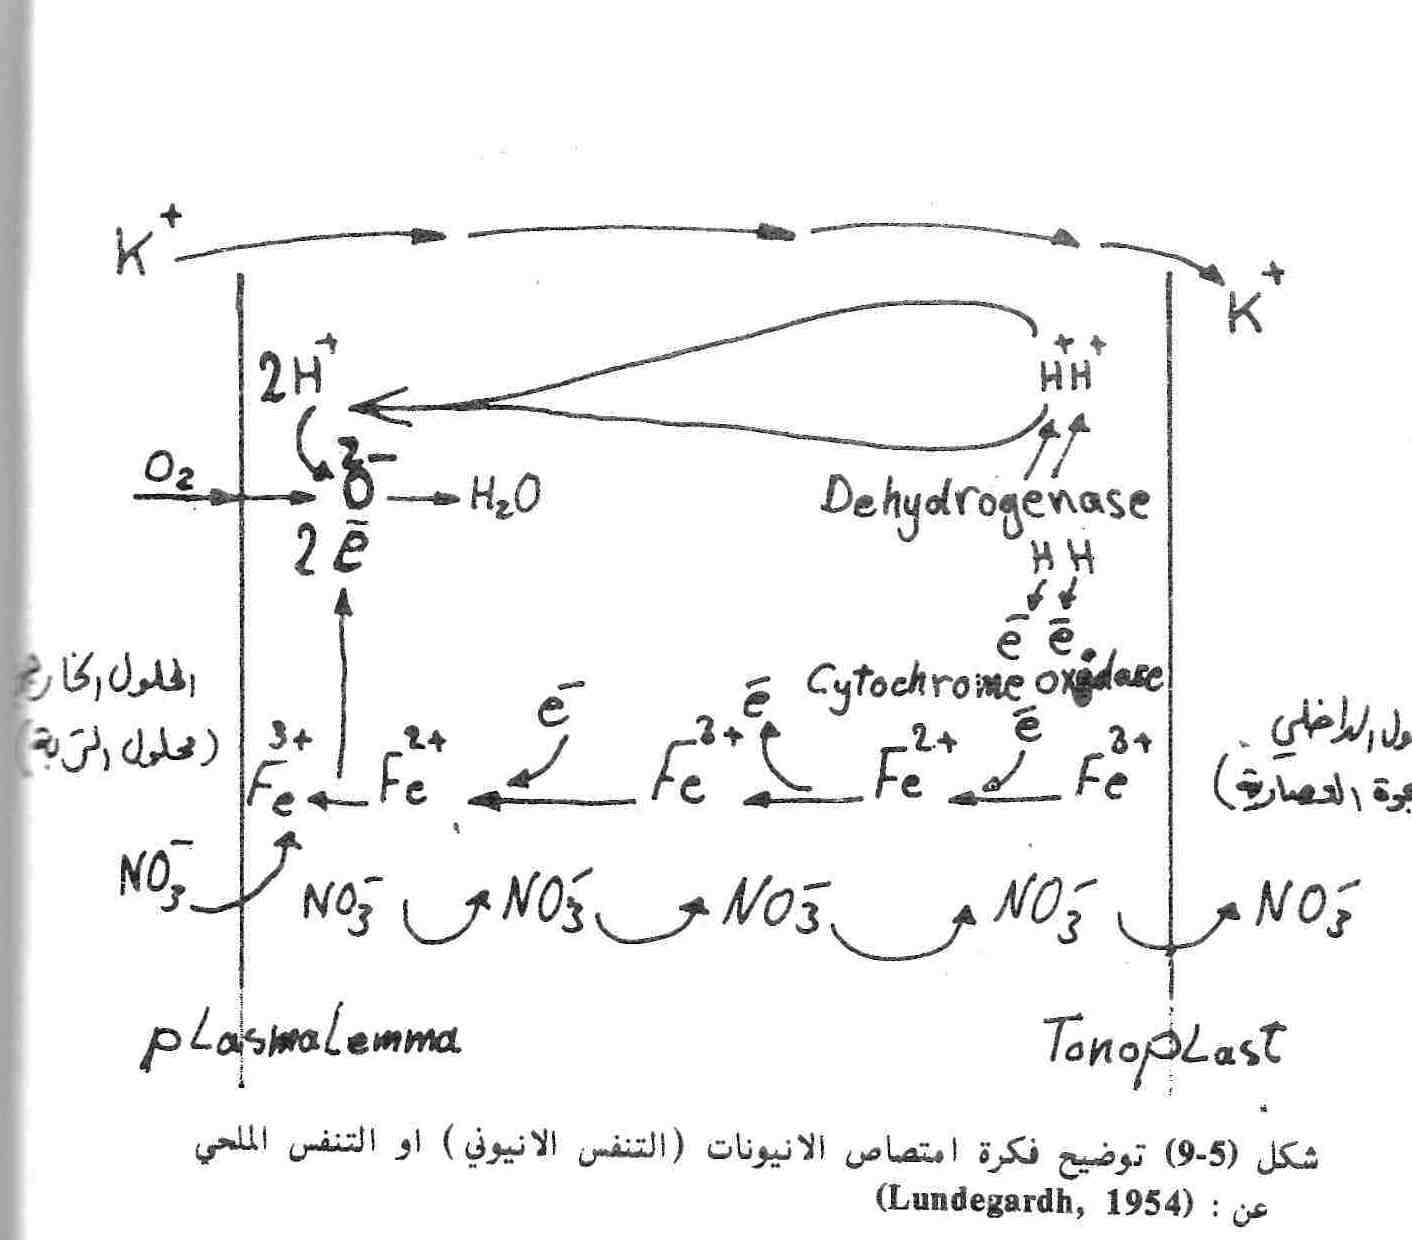 K+
K+
2H+
H+H+
O2
2-
O
H2O
2 e-
Dehydrogenase
H H
e- e-
Cytochrome oxidase
المحلول الخارجي
(محلول التربة)
الداخلي
العصارية)
e-
e-
e-
Fe3+
Fe2+
Fe3+
Fe2+
Fe3+
NO3-
NO3-
NO3-
NO3-
NO3-
NO3-
plasmalemma
Tonoplast
شكل (5-9) توضيح فكرة امتصاص الانيونات (التنفس الانيوني) او التنفس الملحي
عن : (Lundegardh, 1954)